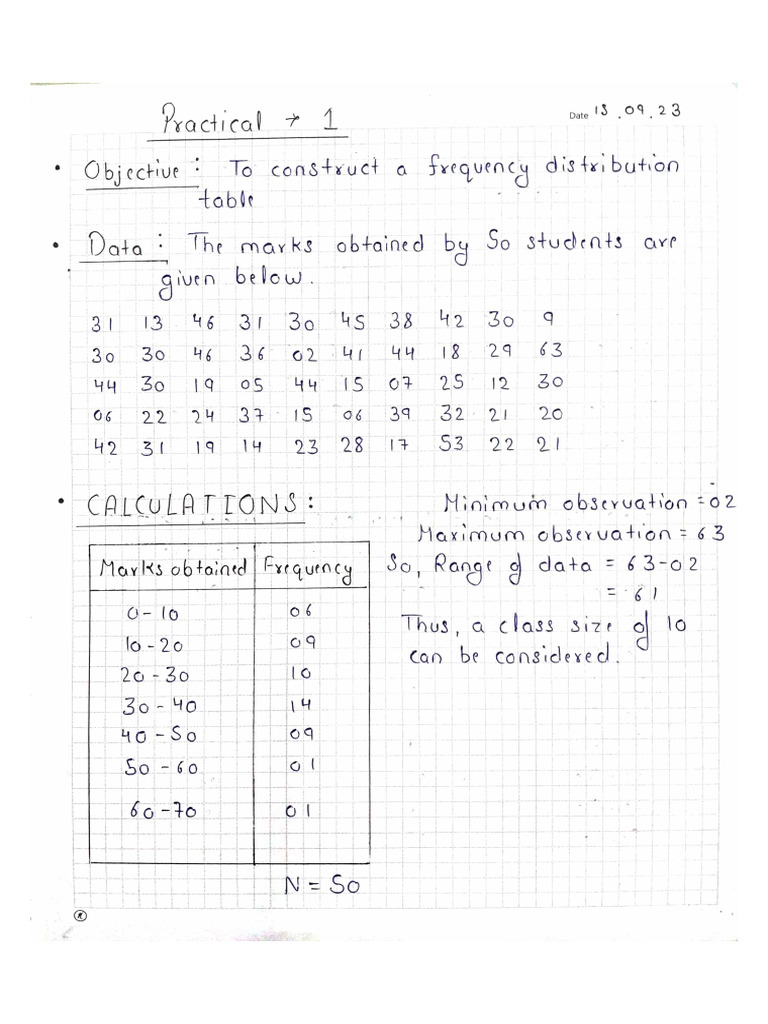 Practical → 1
Date 15.09.23
• Objective: To construct a frequency distribution
table
• Data: The marks obtained by 50 students are
given below.
31 13 46 31 30 45 38 42 30 9
30 30 46 36 02 41 44 18 29 63
44 30 19 05 44 15 07 25 12 30
06 22 24 37 15 06 39 32 21 20
42 31 19 14 23 28 17 53 22 21
• CALCULATIONS:
Minimum observation = 02
Maximum observation = 63
So, Range of data = 63-02
= 61
Thus, a class size of 10
can be considered.
Marks obtained Frequency
0-10 06
10-20 09
20-30 10
30-40 14
40-50 09
50-60 01
60-70 01
N = 50